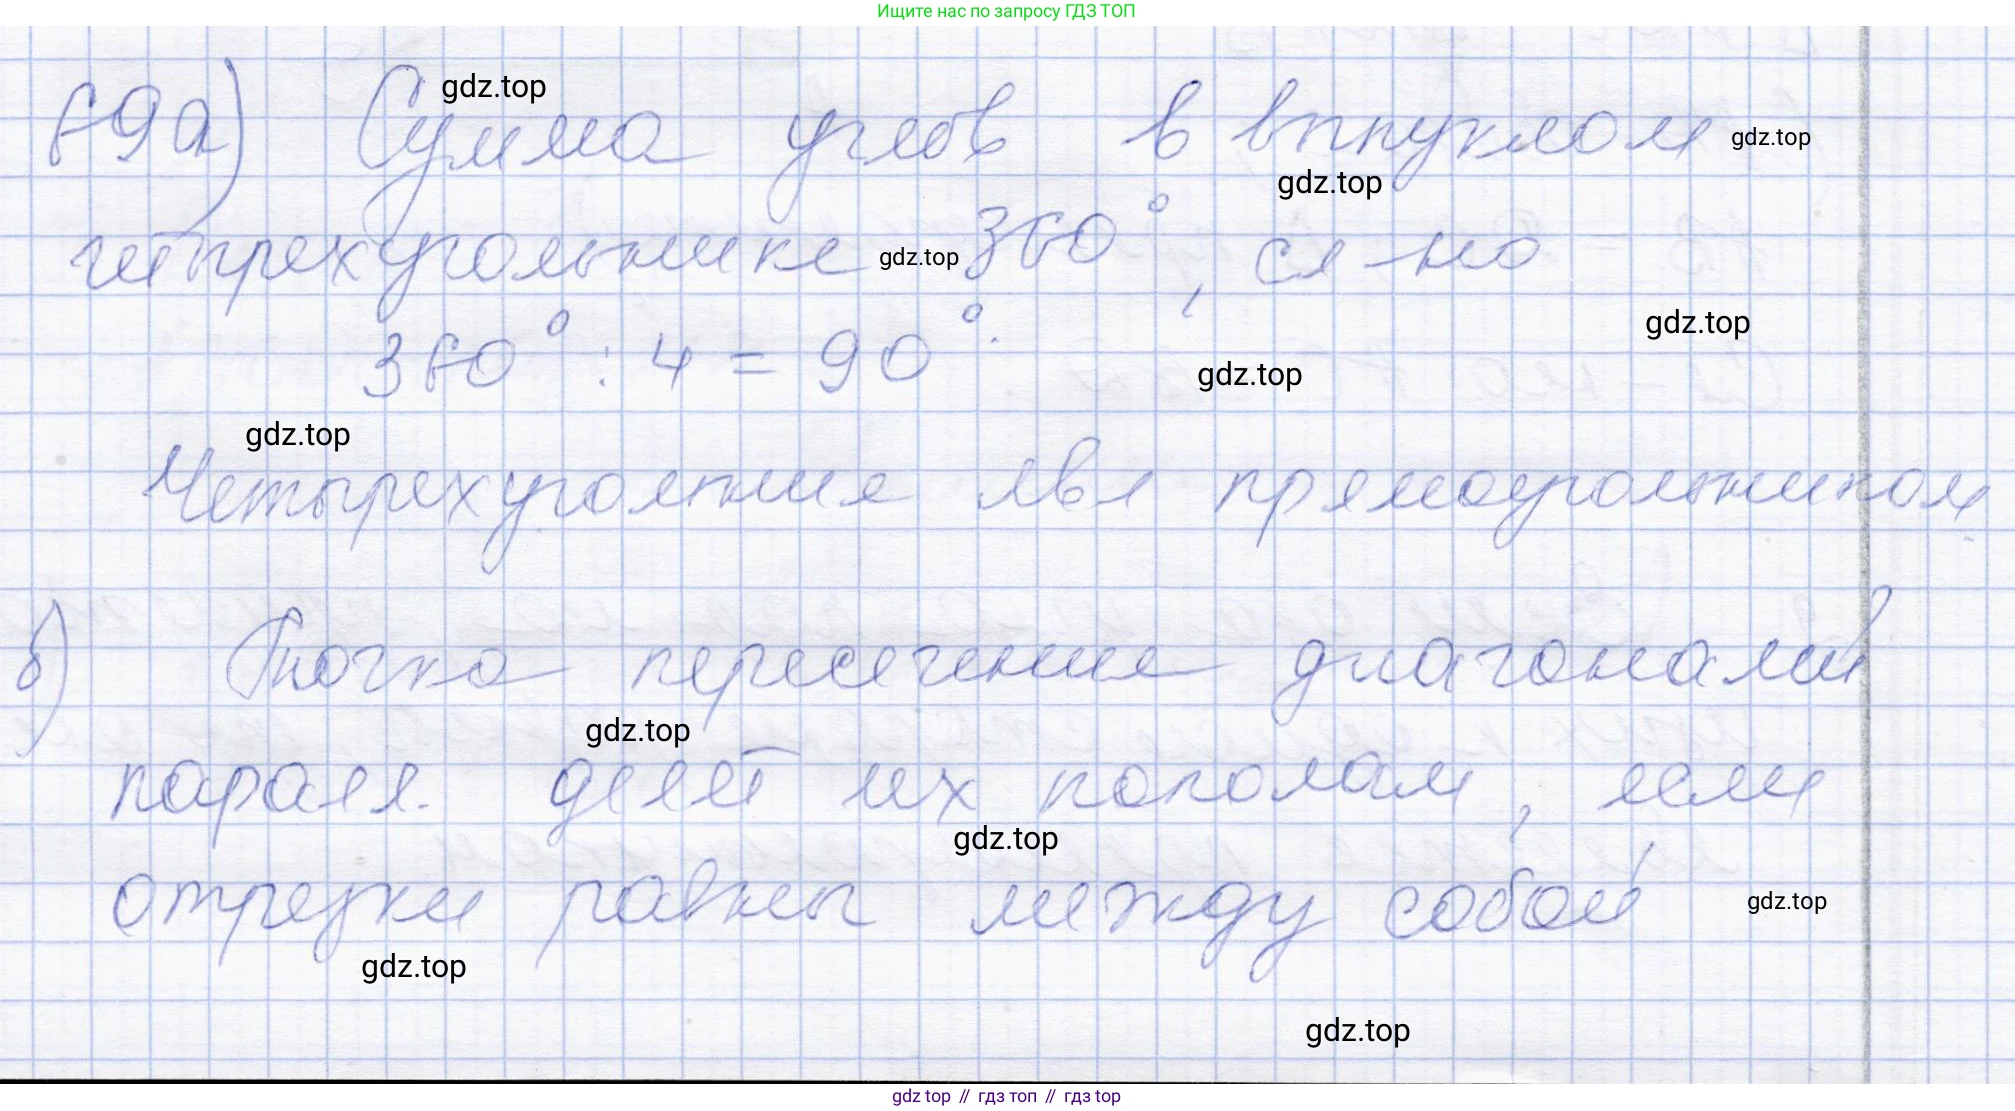 Ищите нас по запросу ГДЗ ТОП
gdz.top
69а) Сумма углов в выпуклом
gdz.top
gdz.top
четырехугольнике 360°, сл-но
gdz.top
gdz.top
360° : 4 = 90°.
gdz.top
gdz.top
Четырехугольник явл прямоугольником
б) Точка пересечения диагоналей
gdz.top
паралл. делит их пополам, если
gdz.top
отрезки равны между собой
gdz.top
gdz.top
gdz.top
gdz top // гдз топ // гдз top